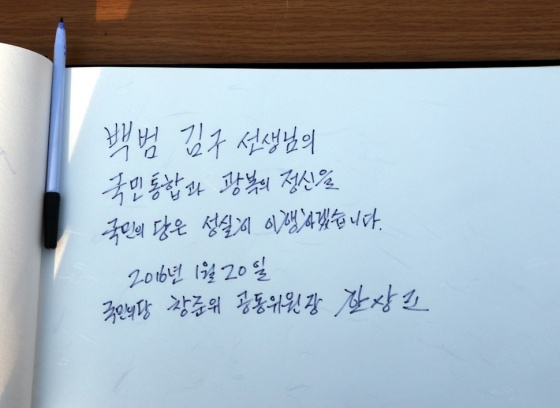 백범 김구 선생님의
국민통합과 광복의 정신을
국민의 당은 성실히 이행하겠습니다.
2016년 1월 20일
국민의당 창준위 공동위원장 한상진